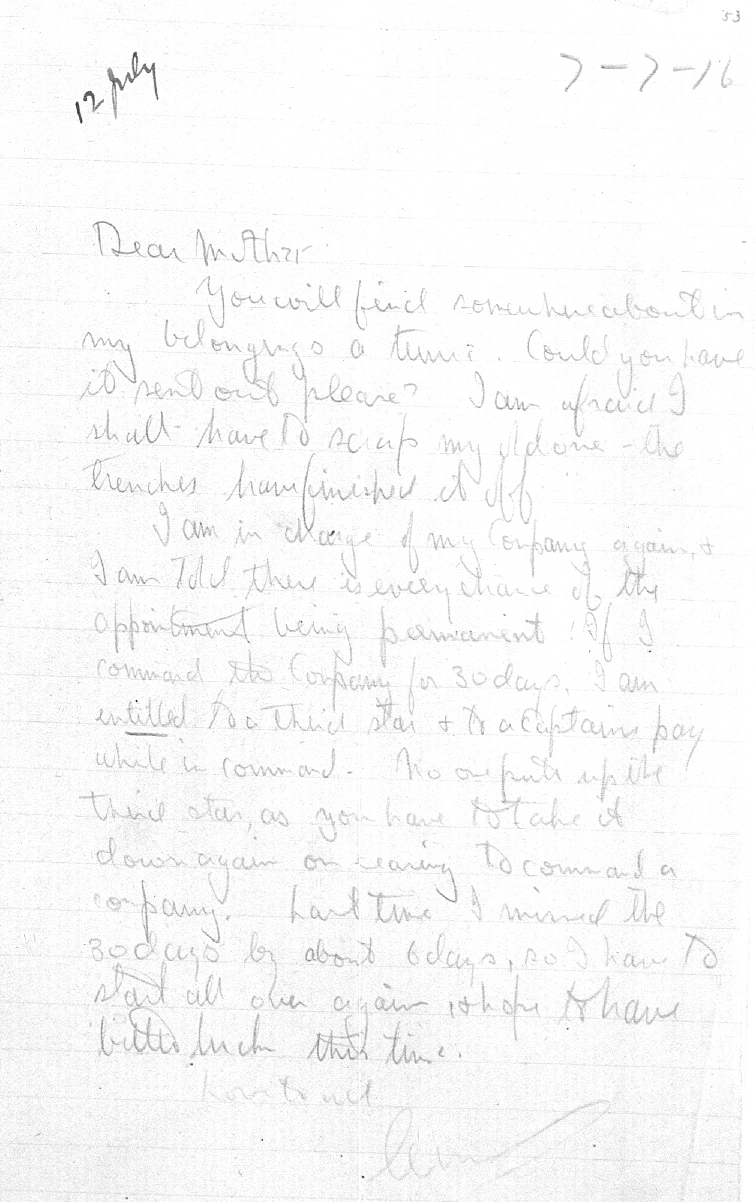 53
12 July
7-7-16
Dear Mother
You will find somewhere about in
my belongings a tunic. Could you have
it sent out please? I am afraid I
shall have to scrap my old one - the
trenches have finished it off
I am in charge of my Company again, +
I am told there is every chance of the
appointment being permanent. If I
command the Company for 30 days, I am
entitled to a third star + to a captains pay
while in command. No one puts up the
third star, as you have to take it
down again on ceasing to command a
company. Last time I missed the
30 days by about 6 days, so I have to
start all over again, + hope to have
better luck this time.
Love to all